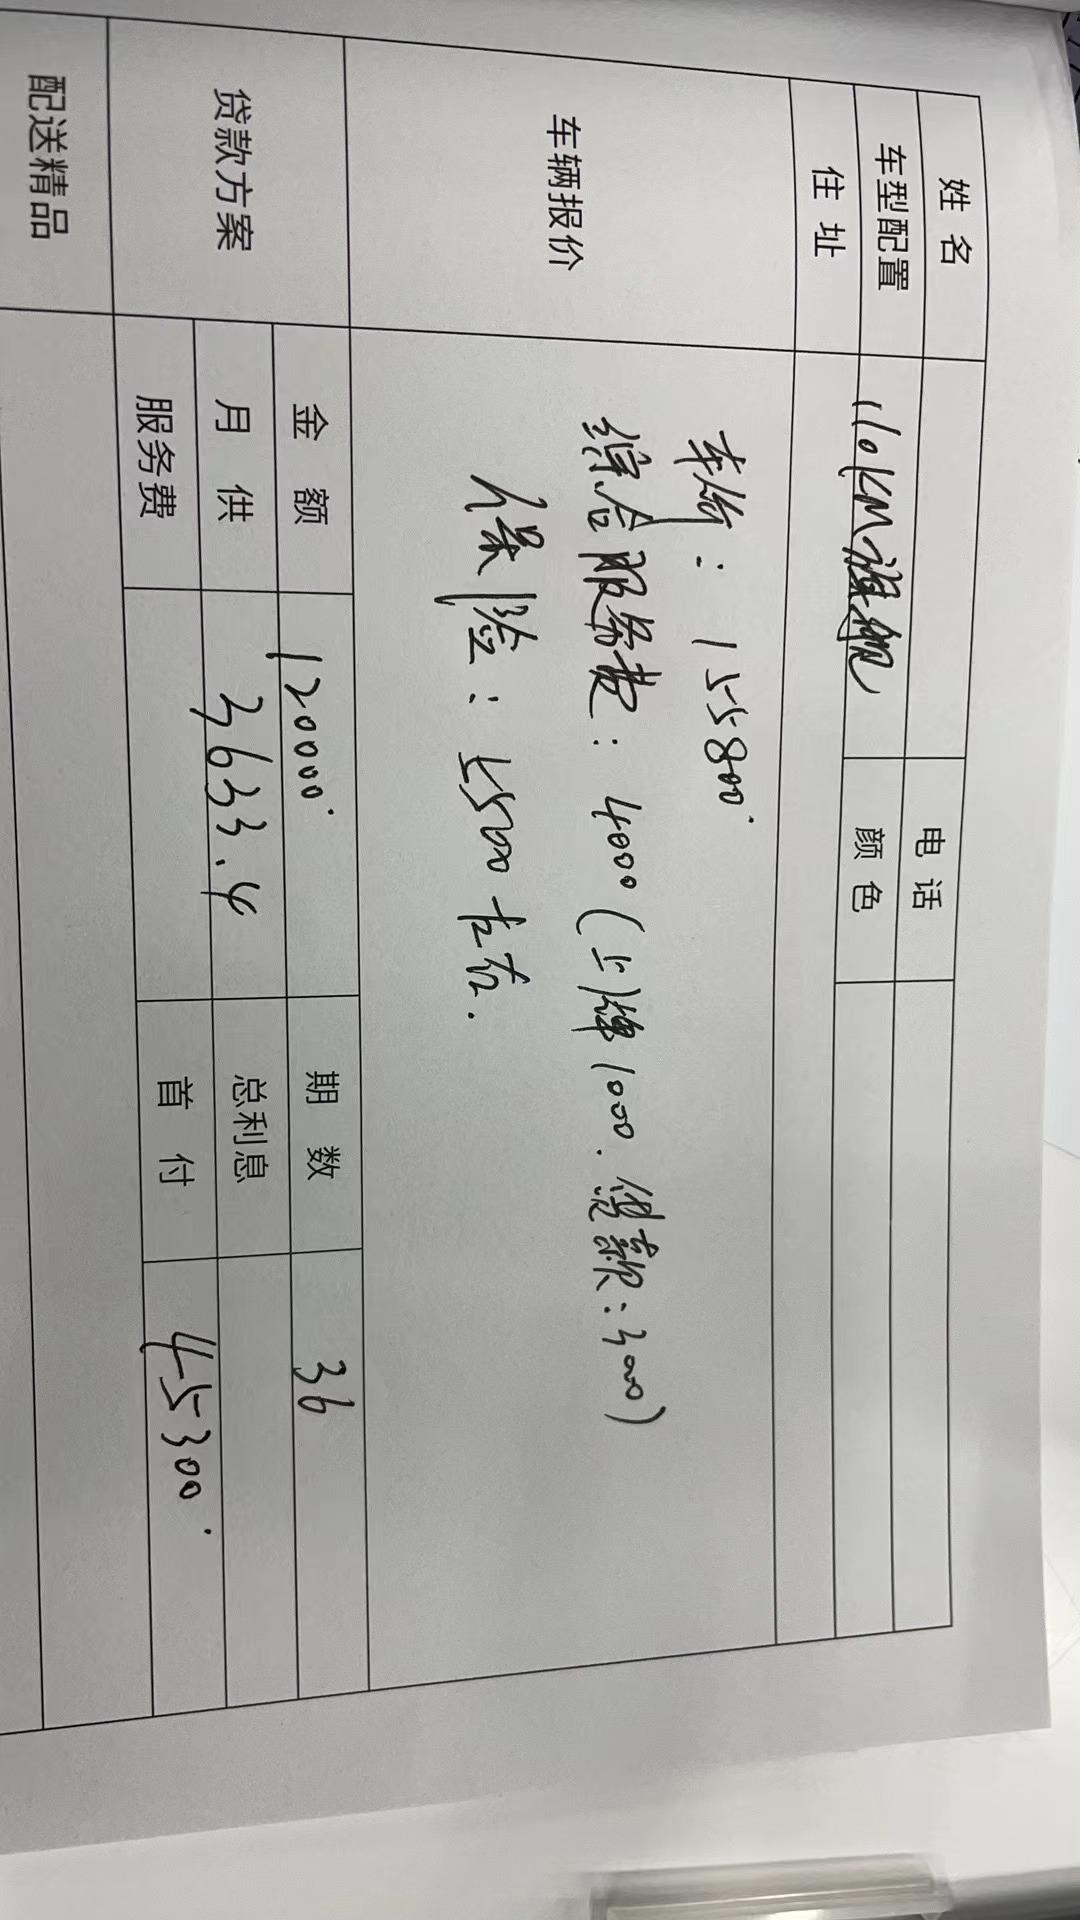 姓 名 电 话
车型配置 110KM旗舰 颜 色
住 址
车辆报价
车价：155800.
综合服务费：4000（上牌1000.贷款：3000）
保险：5500左右.
贷款方案
金 额 120000. 期 数 36
月 供 3633.4 总利息
服务费 首 付 45300.
配送精品